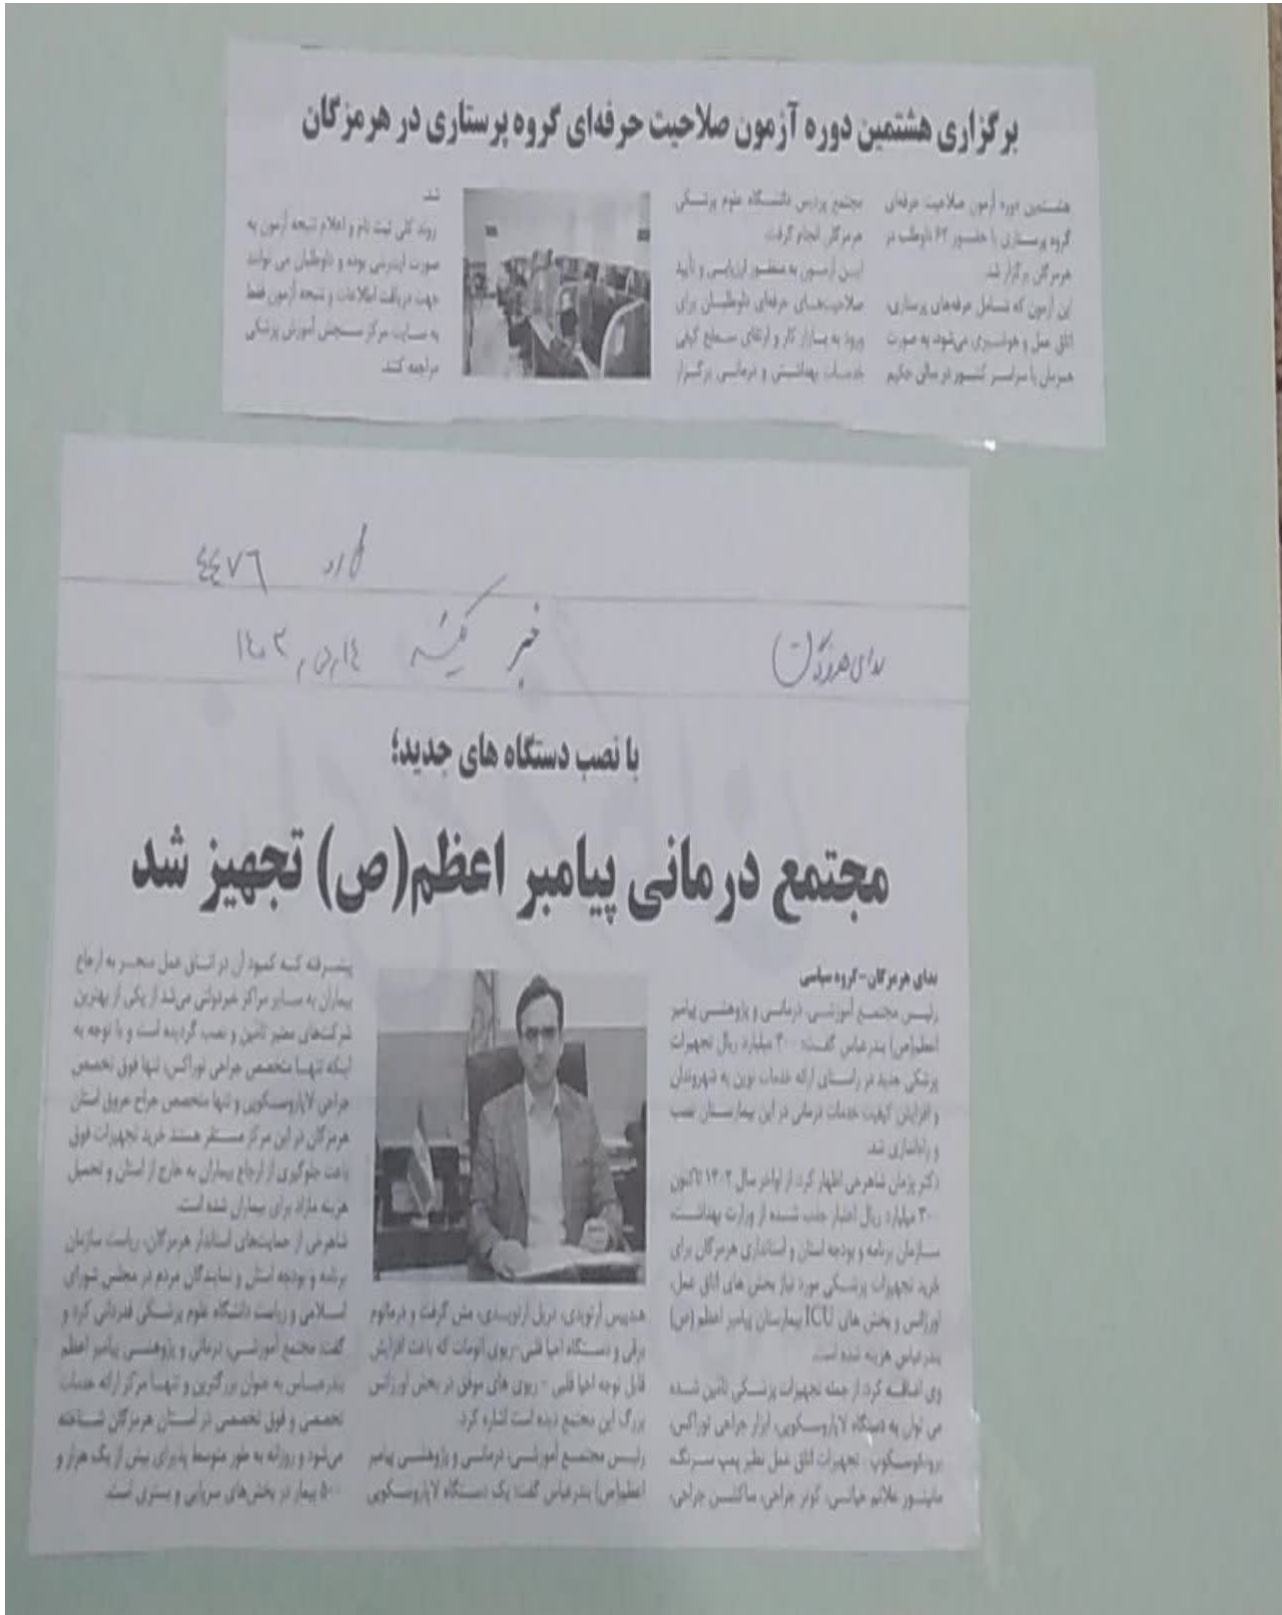 برگزاری هشتمین دوره آزمون صلاحیت حرفه‌ای گروه پرستاری در هرمزگان
هشتمین دوره آزمون صلاحیت حرفه‌ای
گروه پرستاری با حضور ۶۲ داوطلب در
هرمزگان برگزار شد.
این آزمون که شامل حرفه‌های پرستاری،
اتاق عمل و هوشبری می‌شود، به صورت
همزمان با سراسر کشور در سالن حکیم
مجتمع پردیس دانشگاه علوم پزشکی
هرمزگان انجام گرفت.
این آزمون به منظور ارزیابی و تأیید
صلاحیت‌های حرفه‌ای داوطلبان برای
ورود به بازار کار و ارتقای سطح کیفی
خدمات بهداشتی و درمانی برگزار
شد.
روند کلی ثبت نام و اعلام نتیجه آزمون به
صورت اینترنتی بوده و داوطلبان می توانند
جهت دریافت اطلاعات و نتیجه آزمون فقط
به سایت مرکز سنجش آموزش پزشکی
مراجعه کنند.
٤٤٧٦
ندای هرمزگان خبر
با نصب دستگاه های جدید؛
مجتمع درمانی پیامبر اعظم(ص) تجهیز شد
ندای هرمزگان-گروه سیاسی
رئیس مجتمع آموزشی، درمانی و پژوهشی پیامبر
اعظم(ص) بندرعباس گفت: ۳۰۰ میلیارد ریال تجهیزات
پزشکی جدید در راستای ارائه خدمات نوین به شهروندان
و افزایش کیفیت خدمات درمانی در این بیمارستان نصب
و راه‌اندازی شد.
دکتر پژمان شاهرخی اظهار کرد: از اواخر سال ۱۴۰۲ تاکنون
۳۰۰ میلیارد ریال اعتبار جذب شده از وزارت بهداشت،
سازمان برنامه و بودجه استان و استانداری هرمزگان برای
خرید تجهیزات پزشکی مورد نیاز بخش های اتاق عمل،
اورژانس و بخش های ICU بیمارستان پیامبر اعظم (ص)
بندرعباس هزینه شده است.
وی اضافه کرد: از جمله تجهیزات پزشکی تأمین شده
می توان به دستگاه لاپاروسکوپی، ابزار جراحی توراکس،
برونکوسکوپ، تجهیزات اتاق عمل نظیر پمپ سرنگ،
مانیتور علائم حیاتی، کوتر جراحی، ساکشن جراحی،
هندپیس ارتوپدی، دریل ارتوپدی، مش گرفت و درماتوم
برقی و دستگاه احیا قلبی-ریوی اتومات که باعث افزایش
قابل توجه احیا قلبی - ریوی های موفق در بخش اورژانس
بزرگ این مجتمع دیده است اشاره کرد.
رئیس مجتمع آموزشی، درمانی و پژوهشی پیامبر
اعظم(ص) بندرعباس گفت: یک دستگاه لاپاروسکوپی
پیشرفته که کمبود آن در اتاق عمل منجر به ارجاع
بیماران به سایر مراکز غیردولتی می‌شد از یکی از بهترین
شرکت‌های معتبر تأمین و نصب گردیده است و با توجه به
اینکه تنها متخصص جراحی توراکس، تنها فوق تخصص
جراحی لاپاروسکوپی و تنها متخصص جراح عروق استان
هرمزگان در این مرکز مستقر هستند خرید تجهیزات فوق
باعث جلوگیری از ارجاع بیماران به خارج از استان و تحمیل
هزینه مازاد برای بیماران شده است.
شاهرخی از حمایت‌های استاندار هرمزگان، ریاست سازمان
برنامه و بودجه استان و نمایندگان مردم در مجلس شورای
اسلامی و ریاست دانشگاه علوم پزشکی قدردانی کرد و
گفت: مجتمع آموزشی، درمانی و پژوهشی پیامبر اعظم
بندرعباس به عنوان بزرگترین و تنها مرکز ارائه خدمات
تخصصی و فوق تخصصی در استان هرمزگان شناخته
می‌شود و روزانه به طور متوسط پذیرای بیش از یک هزار و
۵۰۰ بیمار در بخش‌های سرپایی و بستری است.